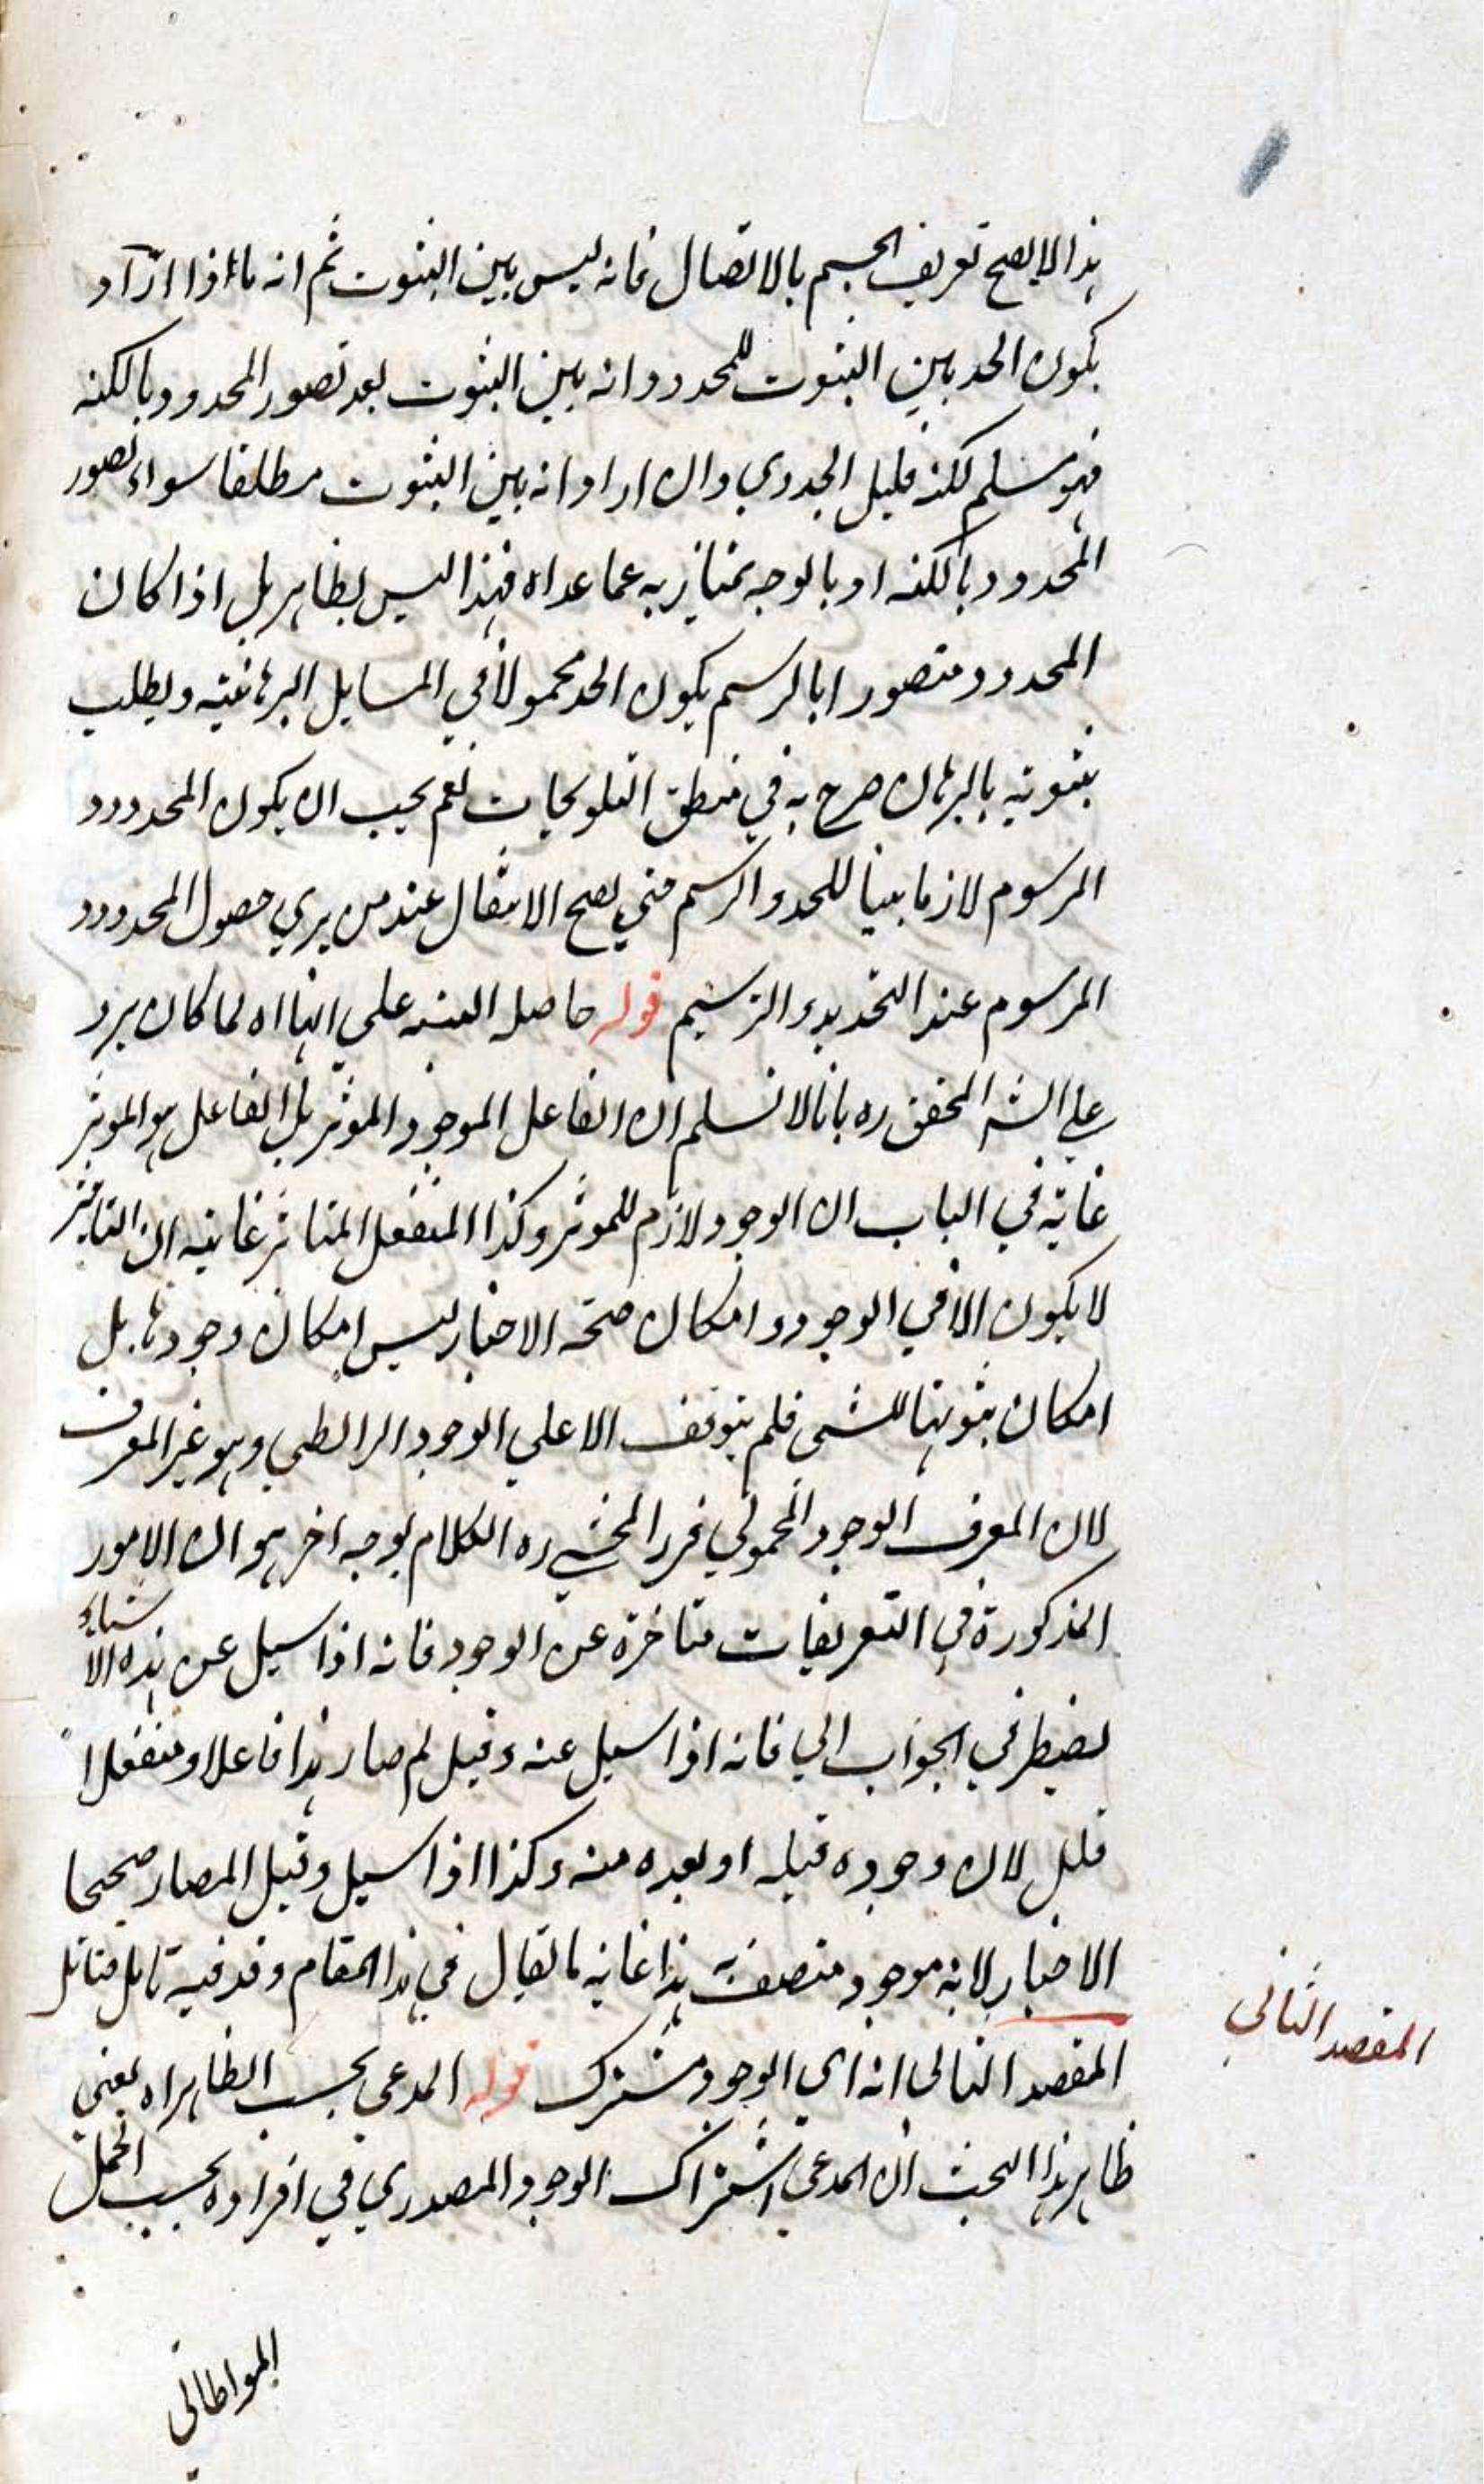 هذا لا يصح تعريف الجسم بالاتصال فانه ليس بين الثبوت ثم انه ما اذا اراد
بكون الحد بين الثبوت للمحدود انه بين الثبوت بعد تصور المحدود بالكنه
فهو مسلم لكنه قليل الجدوي وان اراد انه بين الثبوت مطلقا سواء تصور
المحدود بالكنه او بالوجه يمتاز به عما عداه فهذا ليس بظاهر بل اذا كان
المحدود متصورا بالرسم يكون الحد محمولا في المسايل البرهانيه ويطلب
ثبوته بالبرهان صرح به في منطق التلويحات نعم يجب ان يكون المحدود و
المرسوم لازما بينا للحد والرسم حتي يصح الانتقال عند من يري حصول المحدود و
المرسوم عند التحديد والترسيم قوله حاصله التنبيه علي انها اه لما كان يرد
علي الش المحقق ره بانا لا نسلم ان الفاعل الموجود الموثر بل الفاعل هو الموثر
غايته في الباب ان الوجود لازم للموثر وكذا المنفعل المتاثر غايته ان التاثير
لا يكون الا في الموجود و امكان صحة الاخبار ليس امكان وجودها بل
امكان ثبوتها للشي فلم يتوقف الا علي الوجود الرابطي وهو غير المعرف
لان المعرف الوجود المحمولي فحرر المحشي ره الكلام بوجه اخر هو ان الامور
المذكورة في التعريفات متاخرة عن الوجود فانه اذا سيل عن هذه الاشياء
يضطر في الجواب الي فانه اذا سيل عنه وقيل لم صار هذا فاعلا او منفعلا
قيل لان وجوده قبله او بعده منه وكذا اذا سيل وقيل لم صار صحيحا
الاخبار لانه موجود متصف به هذا غاية ما يقال في هذا المقام وقد فيه تامل فتامل
المقصد الثاني
المقصد الثاني انه اي الوجود مشترك قوله المدعي بحسب الظاهر اه يعني
ظاهر هذا البحث ان المدعي اشتراك الوجود المصدري في افراده بحسب الحمل
المواطاتي